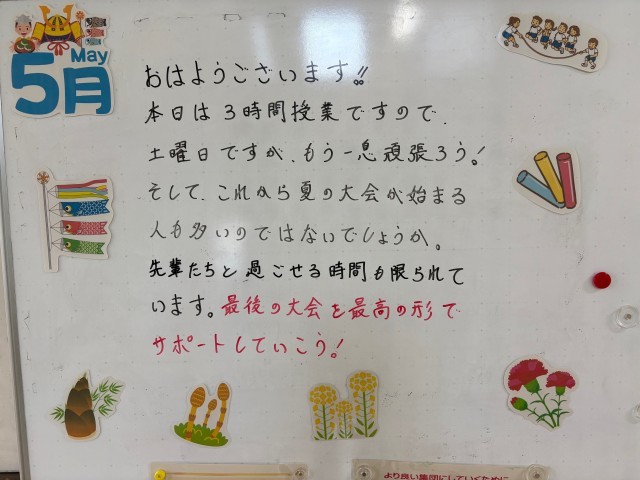 5月
May
おはようございます!!
本日は3時間授業ですので、
土曜日ですが、もう一息頑張ろう!
そして、これから夏の大会が始まる
人も多いのではないでしょうか。
先輩たちと過ごせる時間も限られて
います。最後の大会を最高の形で
サポートしていこう!
より良い集団にしていくために